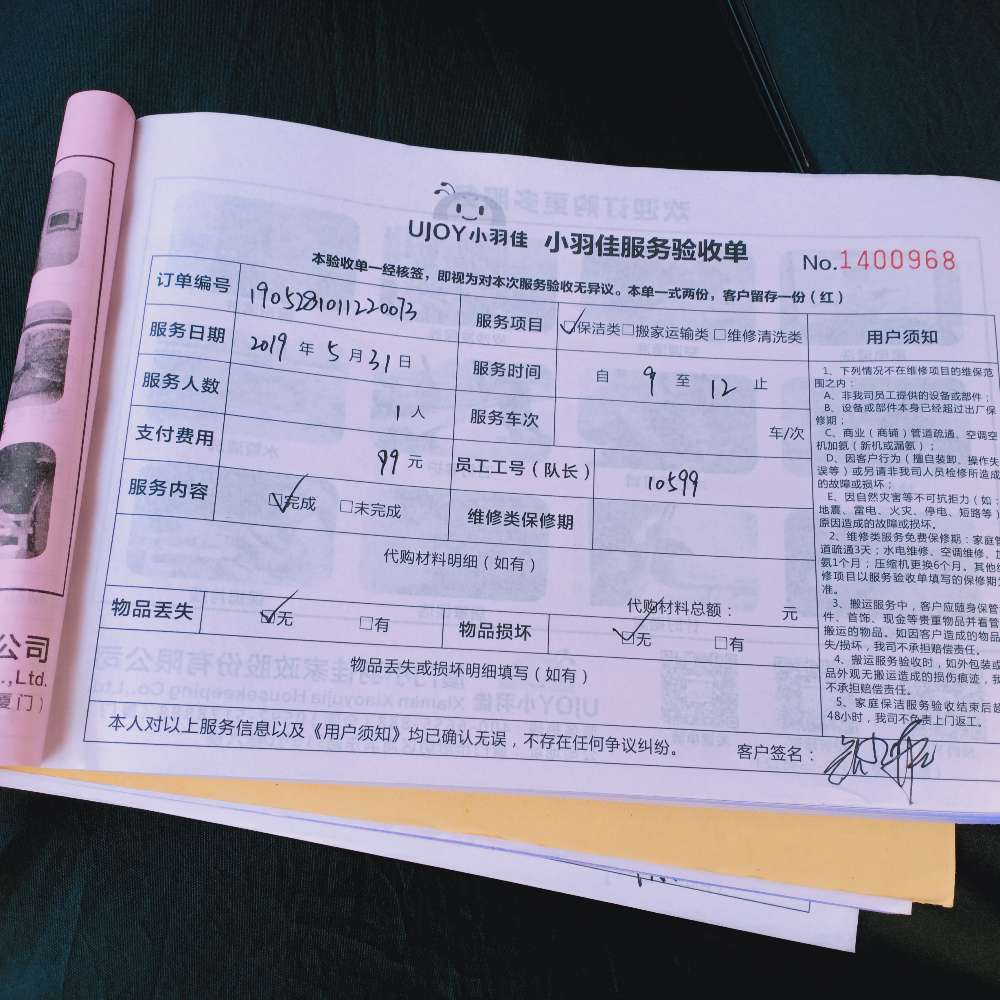 UJOY小羽佳 小羽佳服务验收单
No.1400968
本验收单一经核签，即视为对本次服务验收无异议。本单一式两份，客户留存一份（红）
订单编号 1905281011220073 服务项目 ☑保洁类□搬家运输类□维修清洗类
服务日期 2019 年 5 月 31 日 服务时间 自 9 至 12 止
服务人数 1 人 服务车次 车/次
支付费用 99 元 员工工号（队长） 10599
服务内容 ☑完成 □未完成 维修类保修期
代购材料明细（如有）
代购材料总额： 元
物品丢失 ☑无 □有 物品损坏 ☑无 □有
物品丢失或损坏明细填写（如有）
本人对以上服务信息以及《用户须知》均已确认无误，不存在任何争议纠纷。 客户签名：
用户须知
1、下列情况不在维修项目的维保范
围之内：
A、非我司员工提供的设备或部件；
B、设备或部件本身已经超过出厂保
修期；
C、商业（商铺）管道疏通、空调空
机加氨（新机或漏氨）；
D、因客户行为（擅自装卸、操作失
误等）或另请非我司人员检修所造成
的故障或损坏；
E、因自然灾害等不可抗拒力（如：
地震、雷电、火灾、停电、短路等）
原因造成的故障或损坏。
2、维修类服务免费保修期：家庭管
道疏通3天；水电维修、空调维修、加
氨1个月；压缩机更换6个月。其他维
修项目以服务验收单填写的保修期为
准。
3、搬运服务中，客户应随身保管
件、首饰、现金等贵重物品并看管
搬运的物品。如因客户造成的物品
失/损坏，我司不承担赔偿责任。
4、搬运服务验收时，如外包装或
品外观无搬运造成的损伤痕迹，我
不承担赔偿责任。
5、家庭保洁服务验收结束后超
48小时，我司不负责上门返工。
公司
.,Ltd.
厦门）